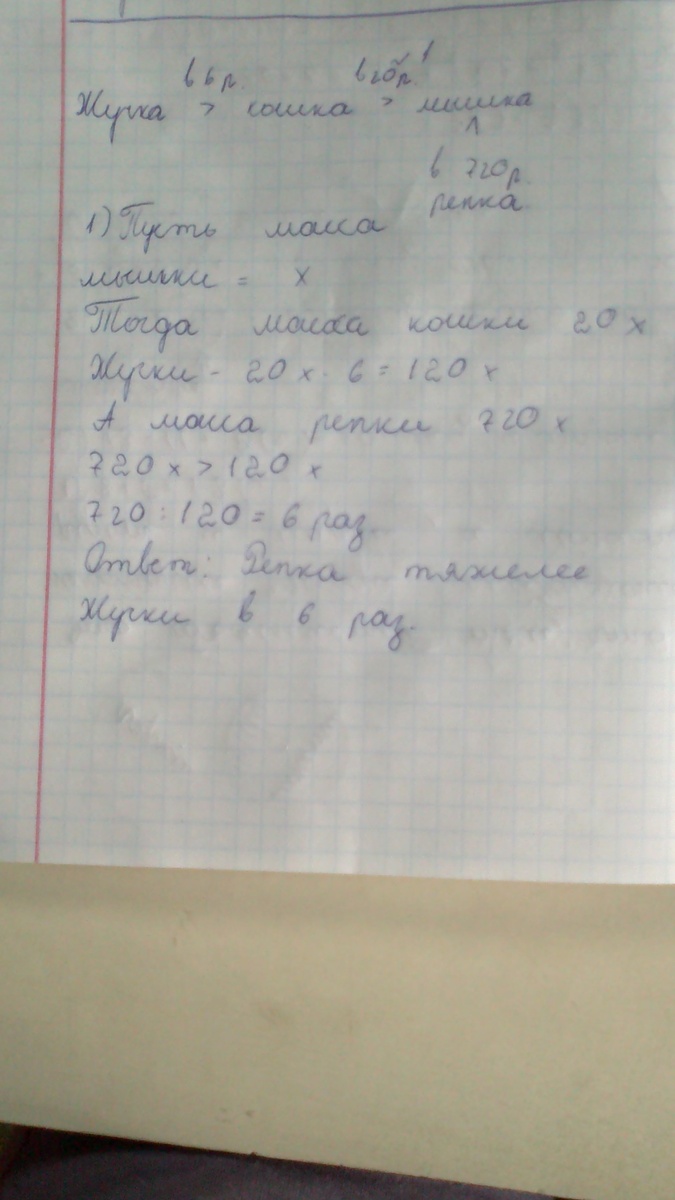 в 6 р. в 20 р.
Жучка > кошка > мышка
^
в 720 р.
репка
1) Пусть масса
мышки = х
Тогда масса кошки 20 х
Жучки - 20 х · 6 = 120 х
А масса репки 720 х
720 х > 120 х
720 : 120 = 6 раз.
Ответ: Репка тяжелее
Жучки в 6 раз.